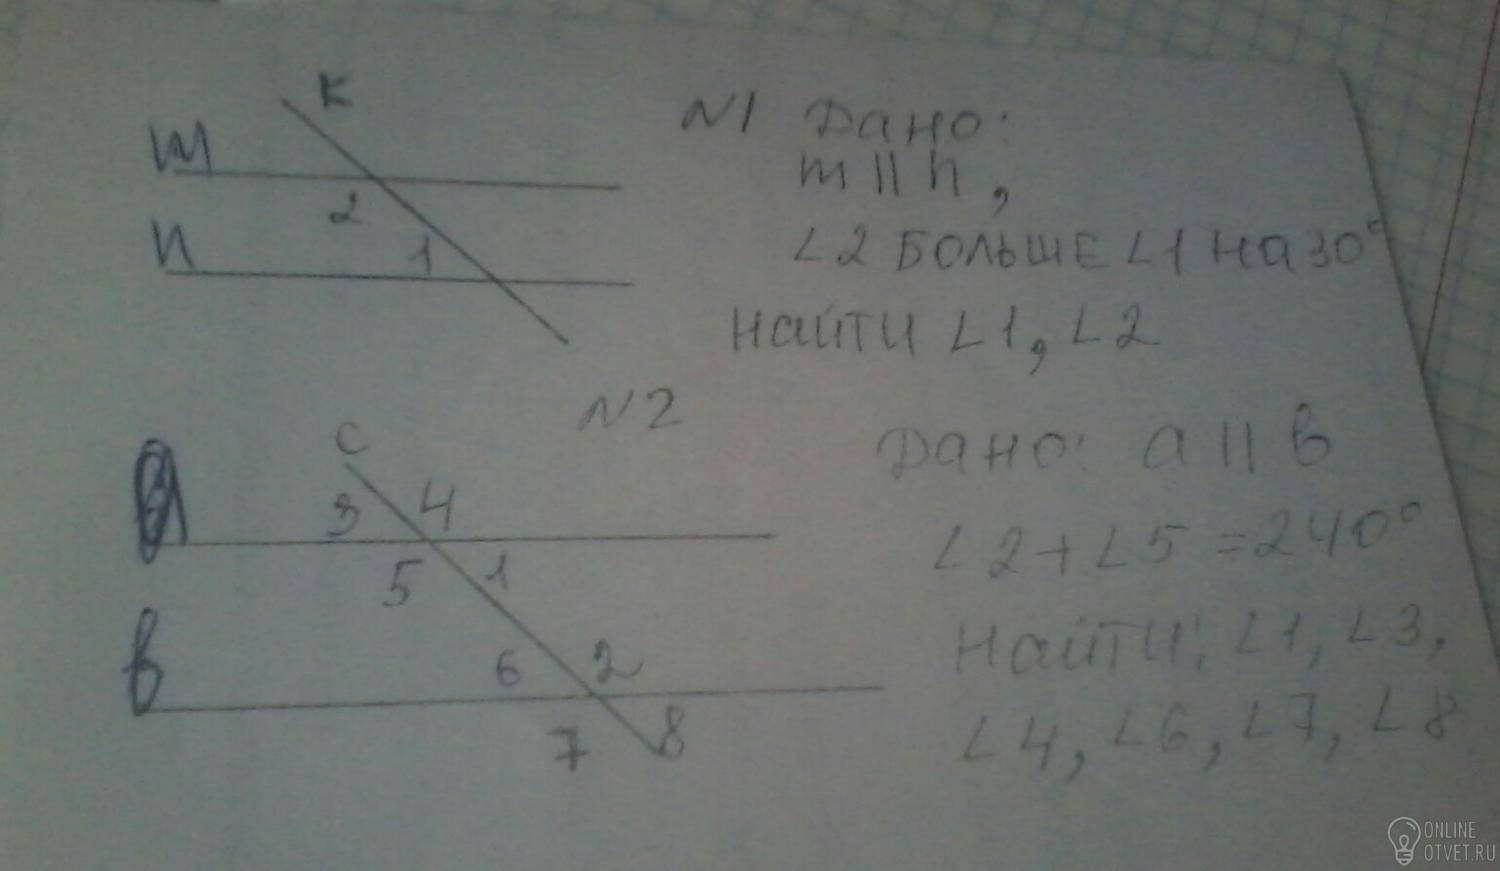 К
m
2
n
1
N1 Дано:
m || n,
∠2 БОЛЬШЕ ∠1 НА 30°
НАЙТИ ∠1, ∠2
N2
С
а
3 4
5 1
в
6 2
7 8
Дано: а || в
∠2+∠5=240°
НАЙТИ: ∠1, ∠3,
∠4, ∠6, ∠7, ∠8
ONLINE
OTVET.RU